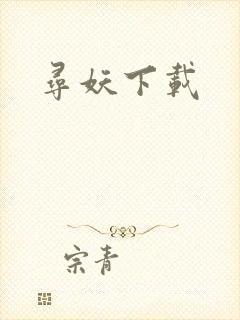 尋妖下載
宗青